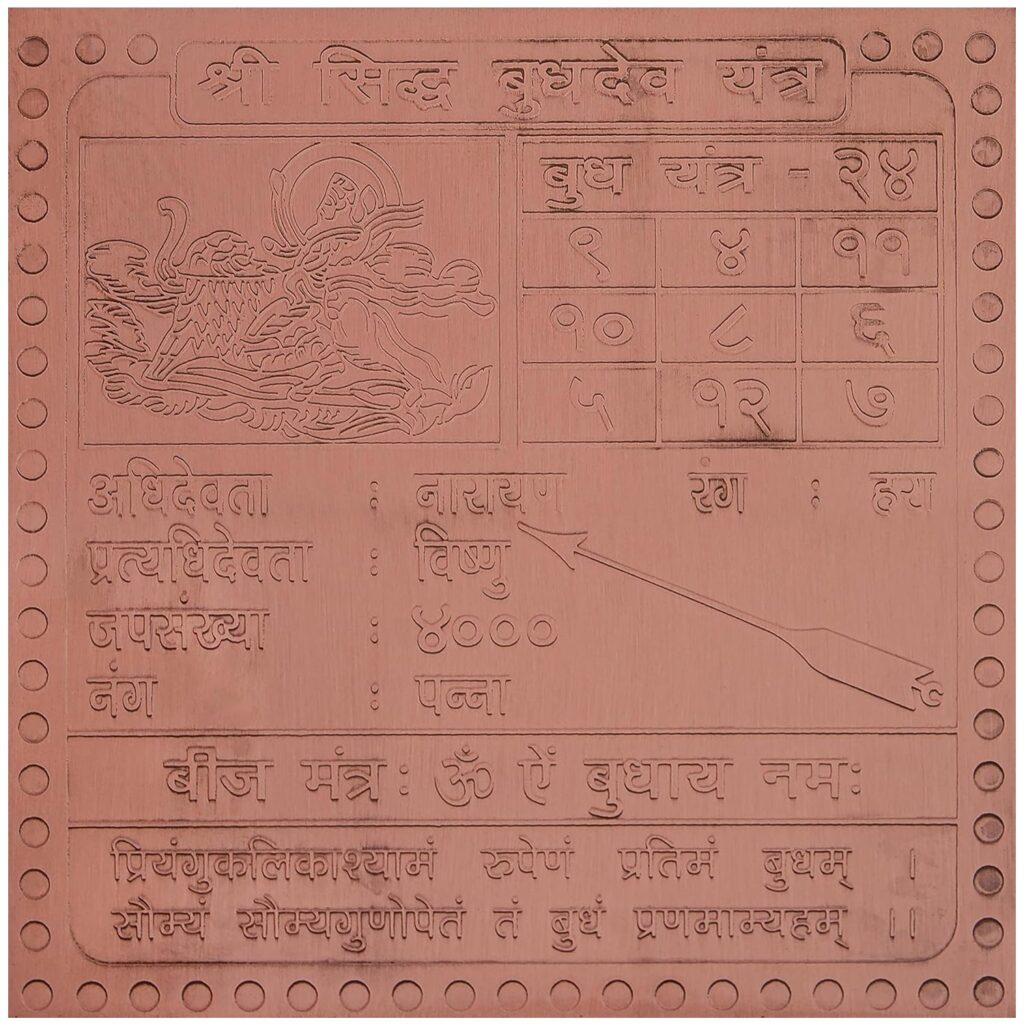 श्री सिद्ध बुधदेव यंत्र
बुध यंत्र - २४
९ ४ ११
१० ८ ६
५ १२ ७
अधिदेवता : नारायण रंग : हरा
प्रत्यधिदेवता : विष्णु
जपसंख्या : ४०००
नंग : पन्ना
बीज मंत्र : ॐ ऐं बुधाय नमः
प्रियंगुकलिकाश्यामं रुपेणं प्रतिमं बुधम् ।
सौम्यं सौम्यगुणोपेतं तं बुधं प्रणमाम्यहम् ।।